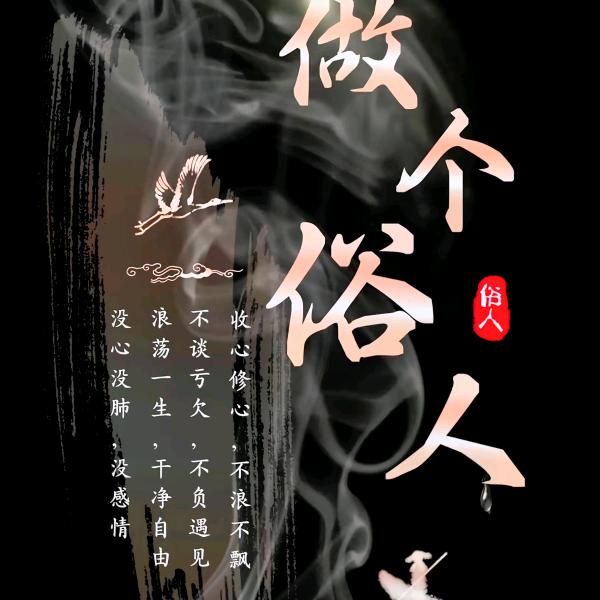 做个俗人
俗人
收心修心，不浪不飘
不谈亏欠，不负遇见
浪荡一生，干净自由
没心没肺，没感情